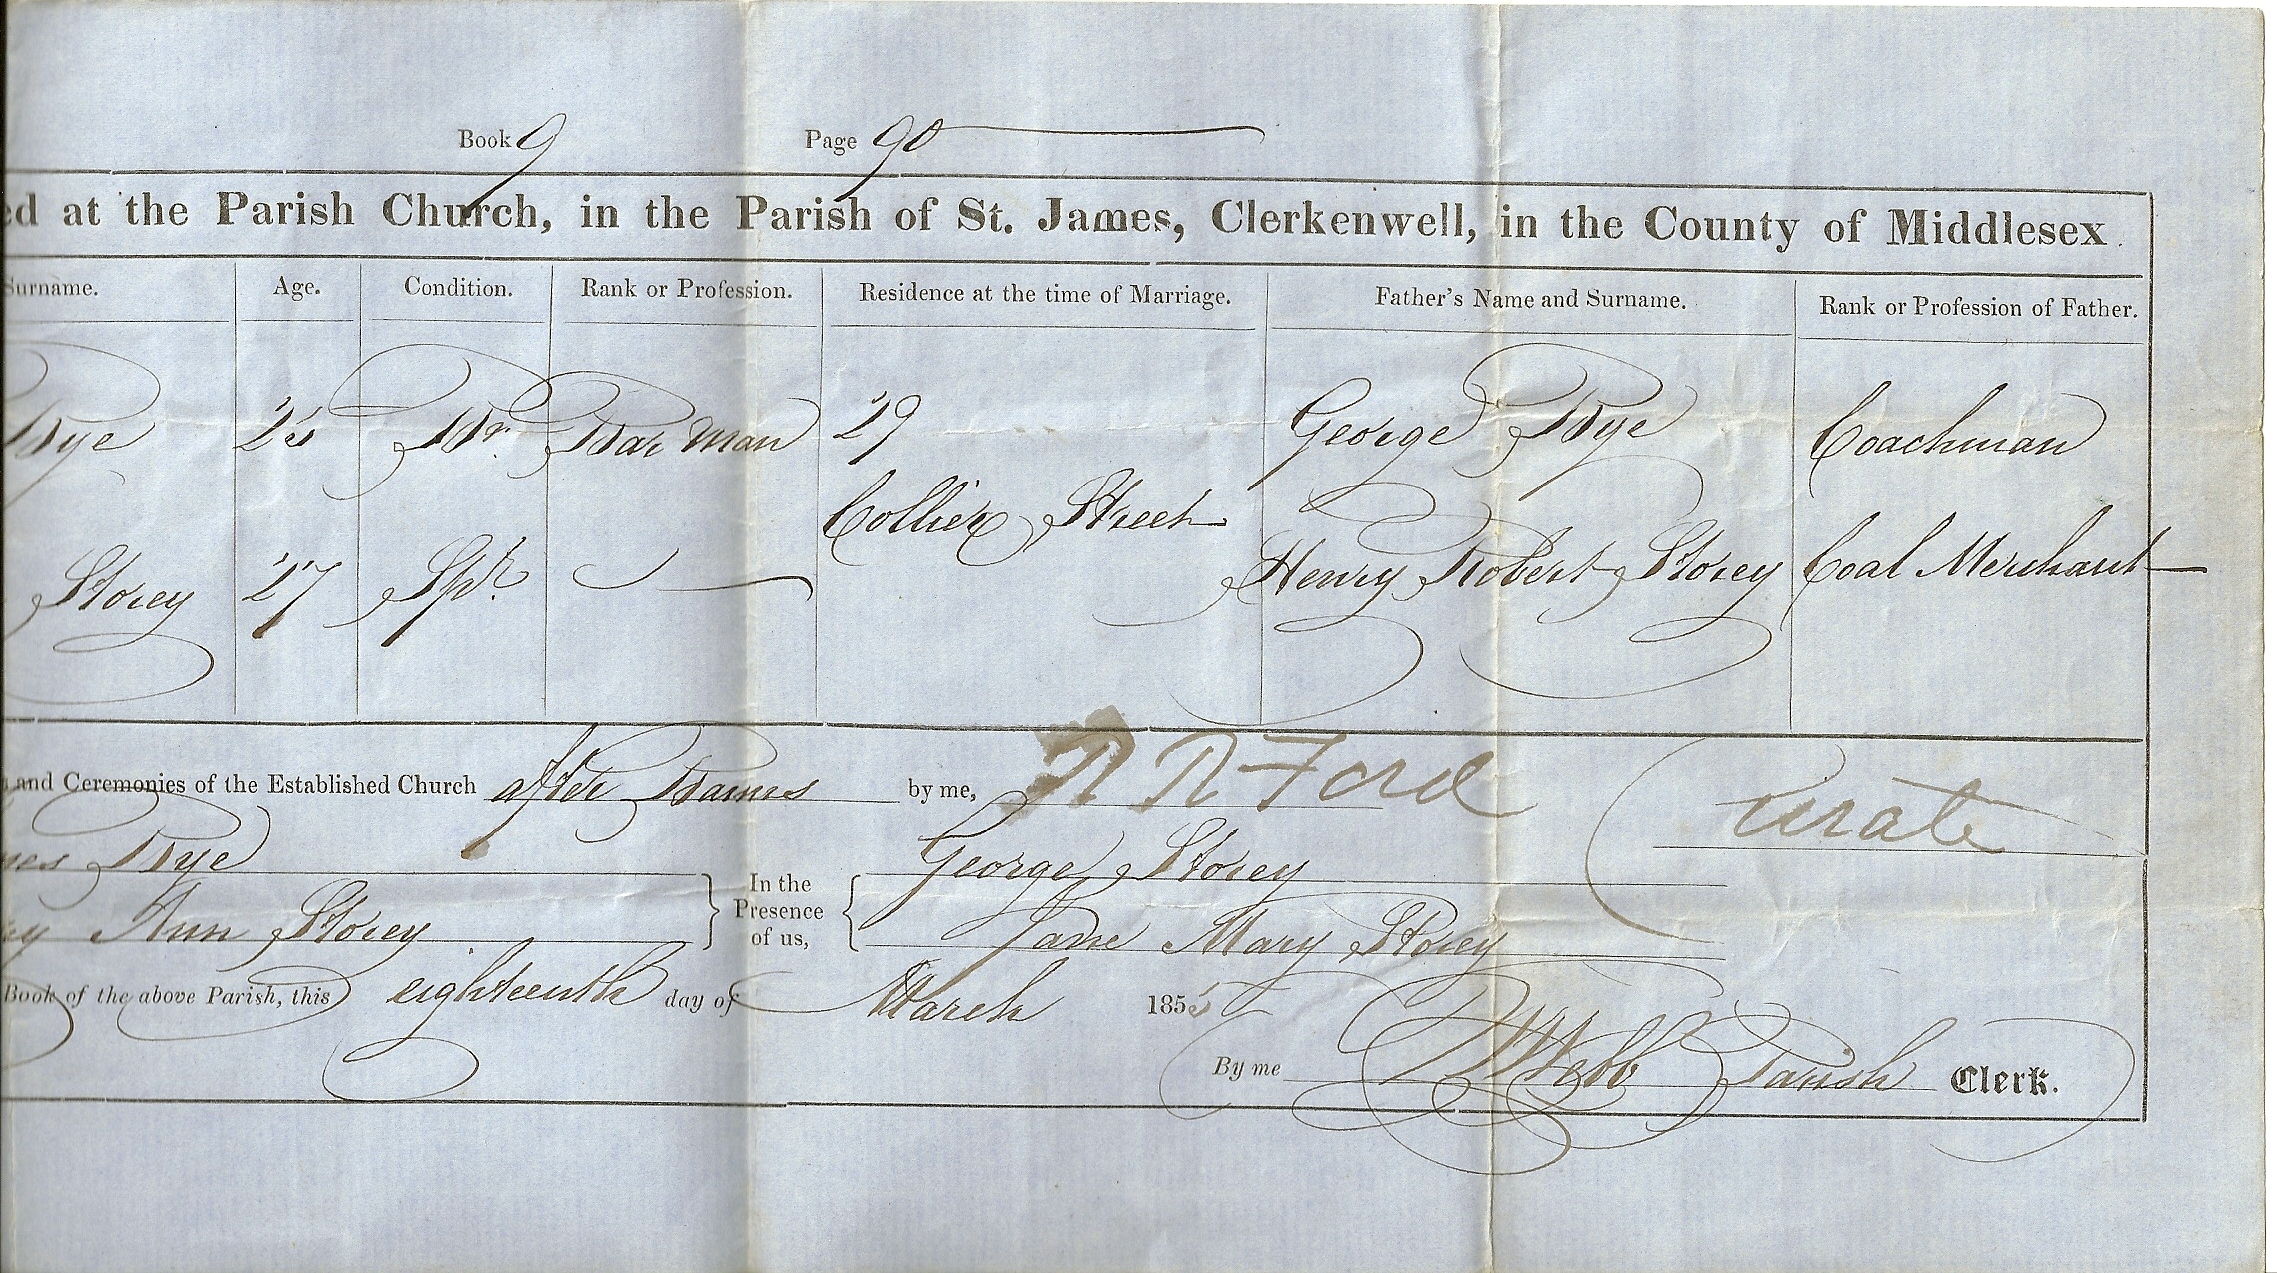 Book 9 Page 90
ed at the Parish Church, in the Parish of St. James, Clerkenwell, in the County of Middlesex.
Surname. Age. Condition. Rank or Profession. Residence at the time of Marriage. Father's Name and Surname. Rank or Profession of Father.
25 Br. Bar Man 29 George Coachman
Collier Street
Storey 27 Spr. Henry Robert Storey Coal Merchant
and Ceremonies of the Established Church after Banns by me, Ford Curate
In the Presence of us,
George Storey
Ann Storey
Jane Mary Storey
Book of the above Parish, this eighteenth day of March 1855
By me Webb Parish Clerk.